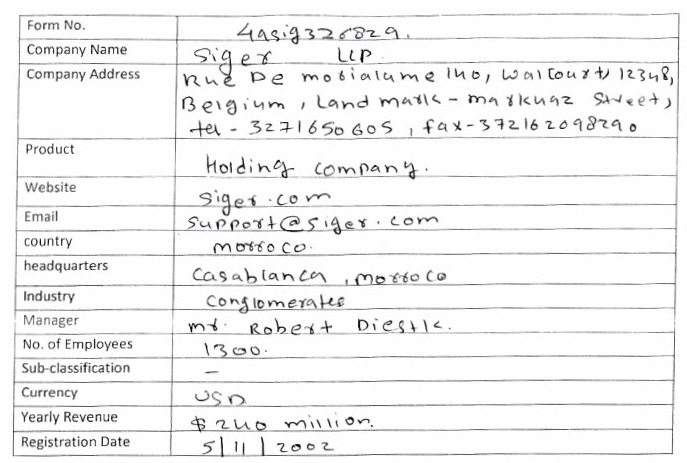 Form No. 4asig326829.
Company Name Siger LLP
Company Address Rue De mobialame 140, Walcourt, 12348,
Belgium, Landmark - markuaz Street,
tel - 3271650605, fax-372162098290
Product Holding company.
Website Siger.com
Email support@siger.com
country morroco.
headquarters Casablanca, morroco
Industry Conglomerates
Manager mr. Robert Diestk.
No. of Employees 1300.
Sub-classification –
Currency USD
Yearly Revenue $240 million.
Registration Date 5/11/2002